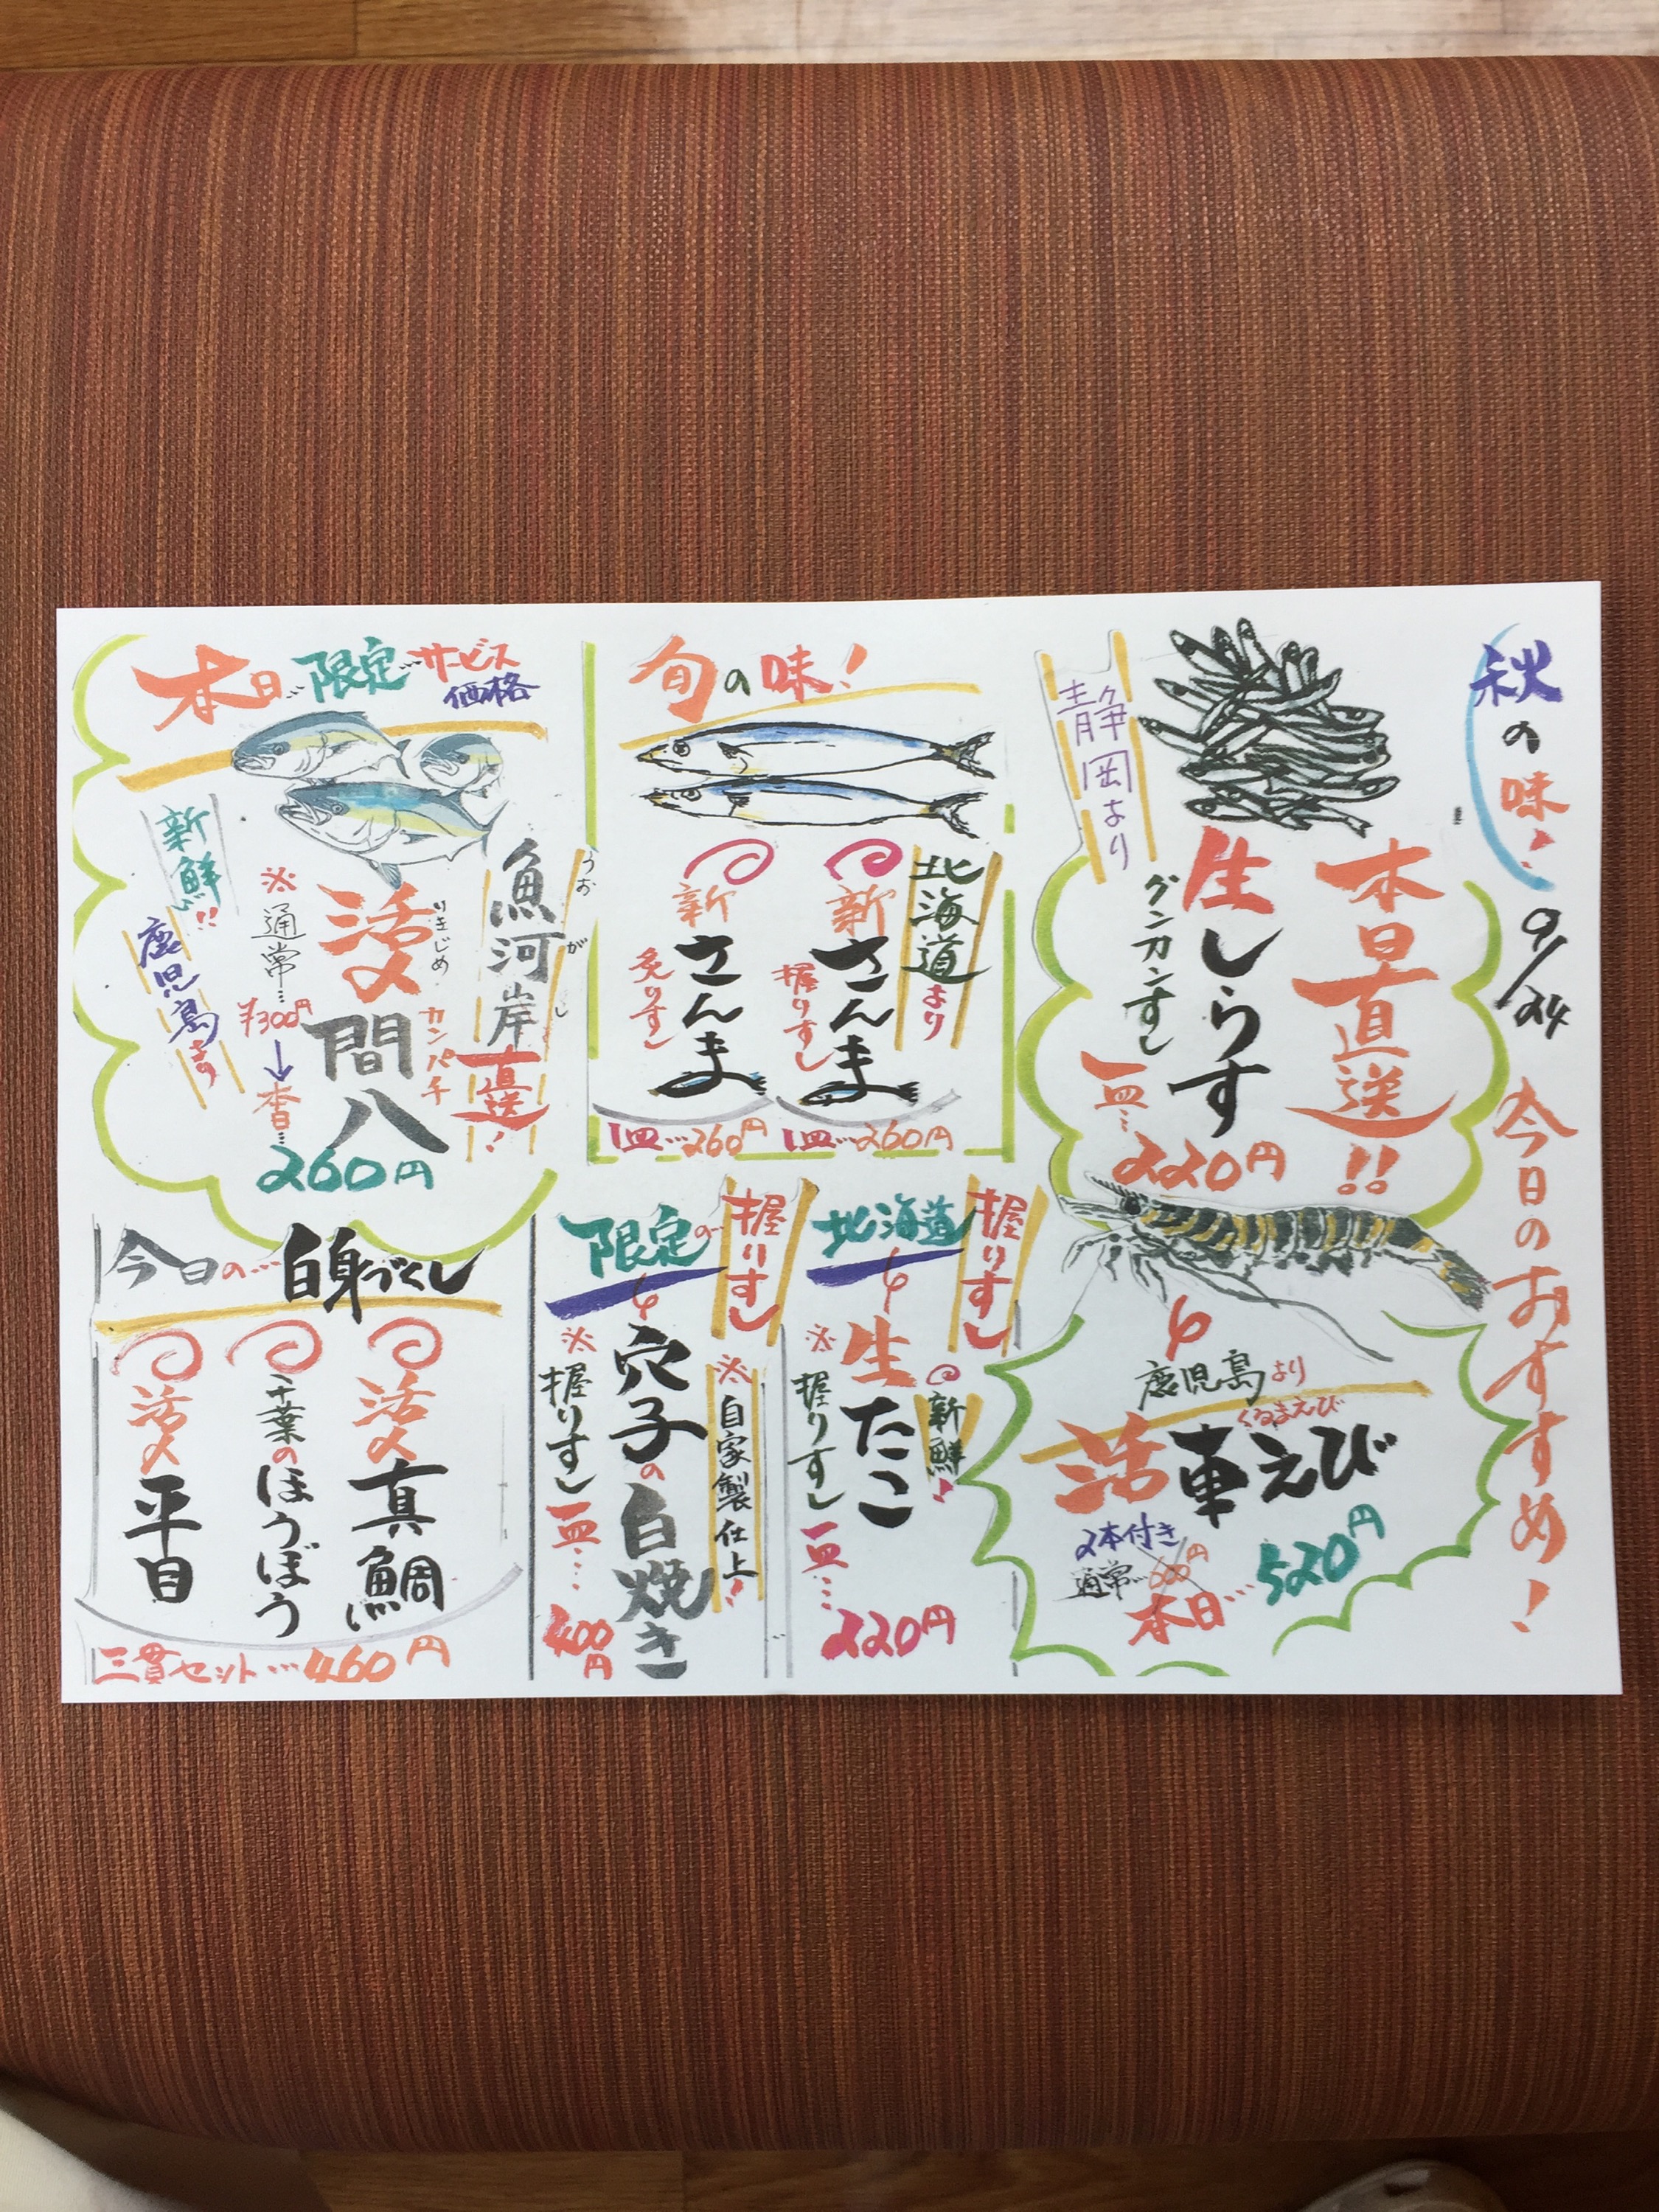 秋の味!
9/24
今日のおすすめ!
本日直送!!
生しらす
グンカンすし
一皿…220円
静岡より
鹿児島より
くるまえび
活車えび
2本付き
通常…600円
本日…520円
旬の味!
北海道より
新さんま
握りすし
1皿…260円
新さんま
炙りすし
1皿…260円
握りすし
北海道
新鮮!
生たこ
※握りすし
一皿…
220円
握りすし
限定の
※自家製仕上!
穴子の白焼き
※握りすし
一皿…
400円
本日…限定…サービス価格
うおがし
魚河岸直送!
いきじめ
活〆
カンパチ
間八
※通常…
¥300円
↓
本日…
260円
新鮮!!
鹿児島より
今日の…白身づくし
活〆真鯛
千葉のほうぼう
活〆平目
三貫セット…460円